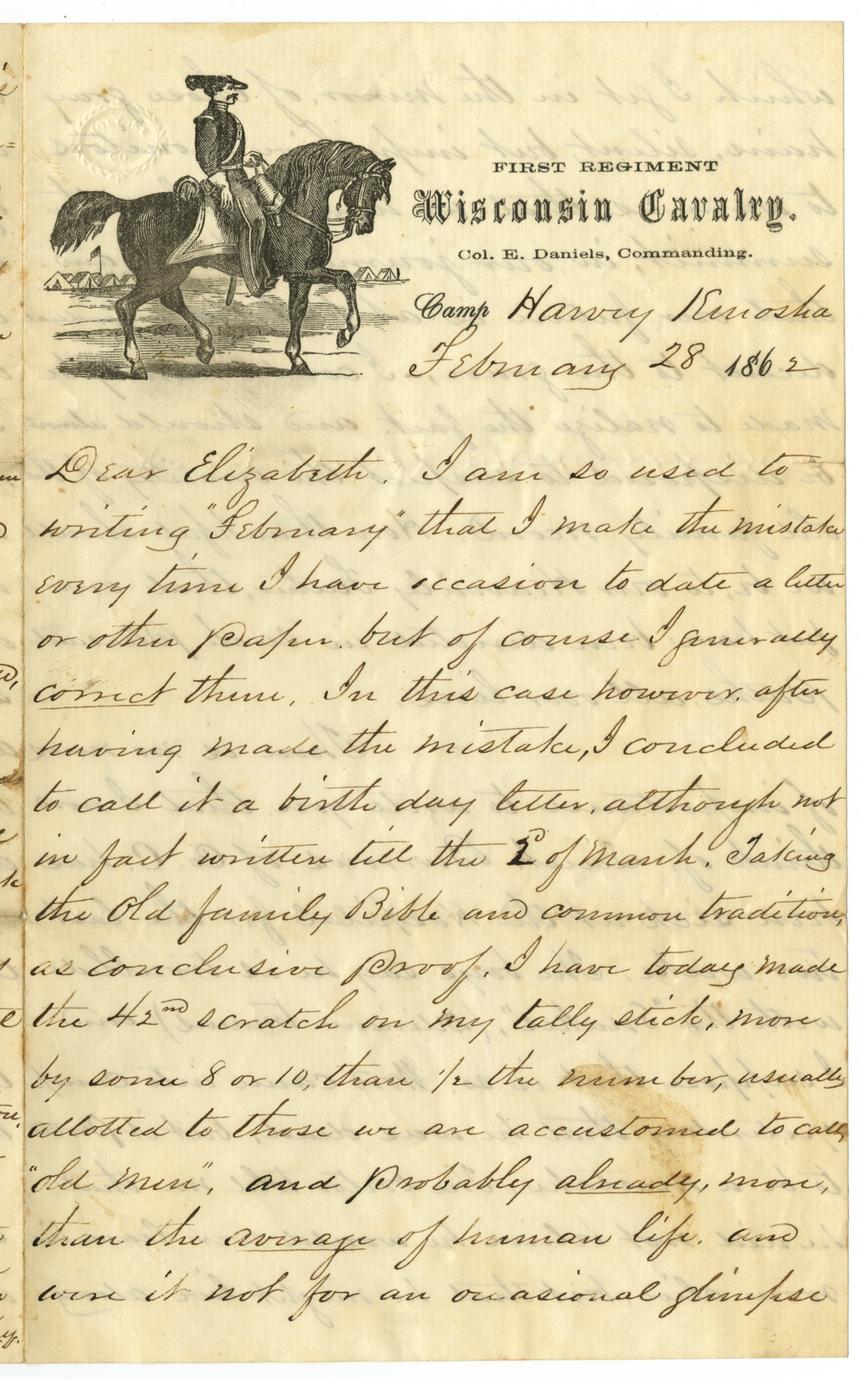 FIRST REGIMENT
Wisconsin Cavalry.
Col. E. Daniels, Commanding.
Camp Harvey Kenosha
February 28 1862
Dear Elizabeth. I am so used to
writing "February" that I make the mistake
every time I have occasion to date a letter
or other Paper. but of course I generally
correct them. In this case however. after
having made the mistake, I concluded
to call it a birth day letter, although not
in fact written till the 2d of March. Taking
the Old family Bible and common tradition,
as conclusive Proof, I have today made
the 42nd scratch on my tally stick, more
by some 8 or 10, than 1/2 the number, usually
allotted to those we are accustomed to call,
"old men", and Probably already, more,
than the average of human life. and
were it not for an occasional glimpse